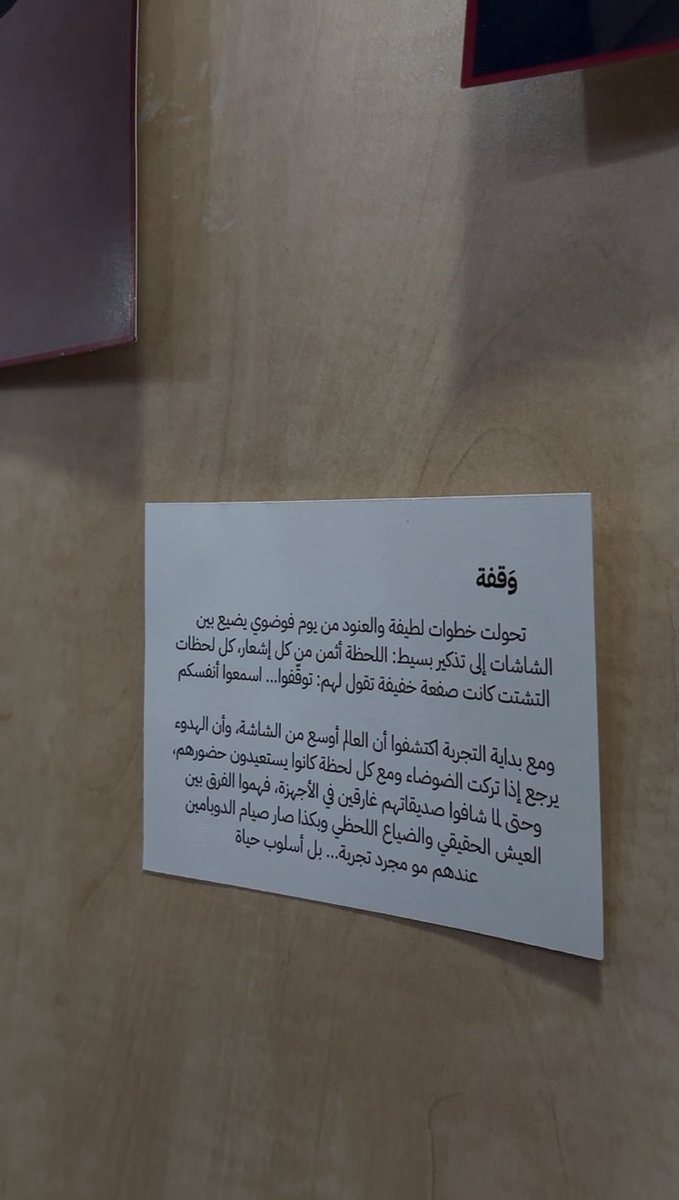 وَقفة
تحولت خطوات لطيفة والعنود من يوم فوضوي يضيع بين
الشاشات إلى تذكير بسيط: اللحظة أثمن من كل إشعار، كل لحظات
التشتت كانت صفعة خفيفة تقول لهم: توقّفوا... اسمعوا أنفسكم
ومع بداية التجربة اكتشفوا أن العالم أوسع من الشاشة، وأن الهدوء
يرجع إذا تركت الضوضاء ومع كل لحظة كانوا يستعيدون حضورهم،
وحتى لما شافوا صديقاتهم غارقين في الأجهزة، فهموا الفرق بين
العيش الحقيقي والضياع اللحظي وبكذا صار صيام الدوبامين
عندهم مو مجرد تجربة... بل أسلوب حياة